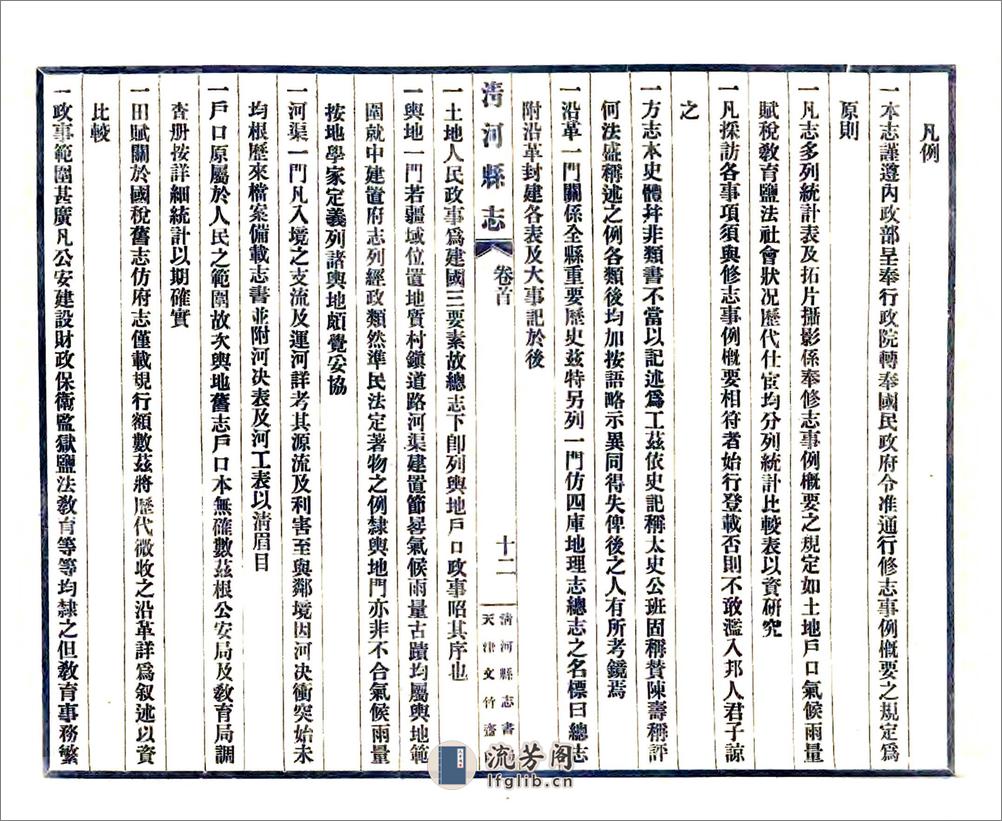 凡例
一本志謹遵內政部呈奉行政院轉奉國民政府令准通行修志事例概要之規定爲
原則
一凡志多列統計表及拓片攝影係奉修志事例概要之規定如土地戶口氣候雨量
賦稅敎育鹽法社會狀况歷代仕宦均分列統計比較表以資研究
一凡採訪各事項須與修志事例概要相符者始行登載否則不敢濫入邦人君子諒
之
一方志本史體幷非類書不當以記述爲工茲依史記稱太史公班固稱贊陳壽稱評
何法盛稱述之例各類後均加按語略示異同得失俾後之人有所考鏡焉
一沿革一門關係全縣重要歷史茲特另列一門仿四庫地理志總志之名標曰總志
附沿革封建各表及大事記於後
清河縣志
卷首
十二
清河縣志書
天津文竹齋
一土地人民政事爲建國三要素故總志下卽列輿地戶口政事昭其序也
一輿地一門若疆域位置地質村鎭道路河渠建置節晷氣候雨量古蹟均屬輿地範
圍就中建置府志列經政類然準民法定著物之例隸輿地門亦非不合氣候雨量
按地學家定義列諸輿地頗覺妥協
一河渠一門凡入境之支流及運河詳考其源流及利害至與鄰境因河决衝突始末
均根歷來檔案備載志書並附河决表及河工表以淸眉目
一戶口原屬於人民之範圍故次輿地舊志戶口本無確數茲根公安局及敎育局調
查册按詳細統計以期確實
一田賦關於國稅舊志仿府志僅載規行額數茲將歷代徵收之沿革詳爲叙述以資
比較
一政事範圍甚廣凡公安建設財政保衛監獄鹽法敎育等等均隸之但敎育事務繁
流芳阁
lfglib.cn